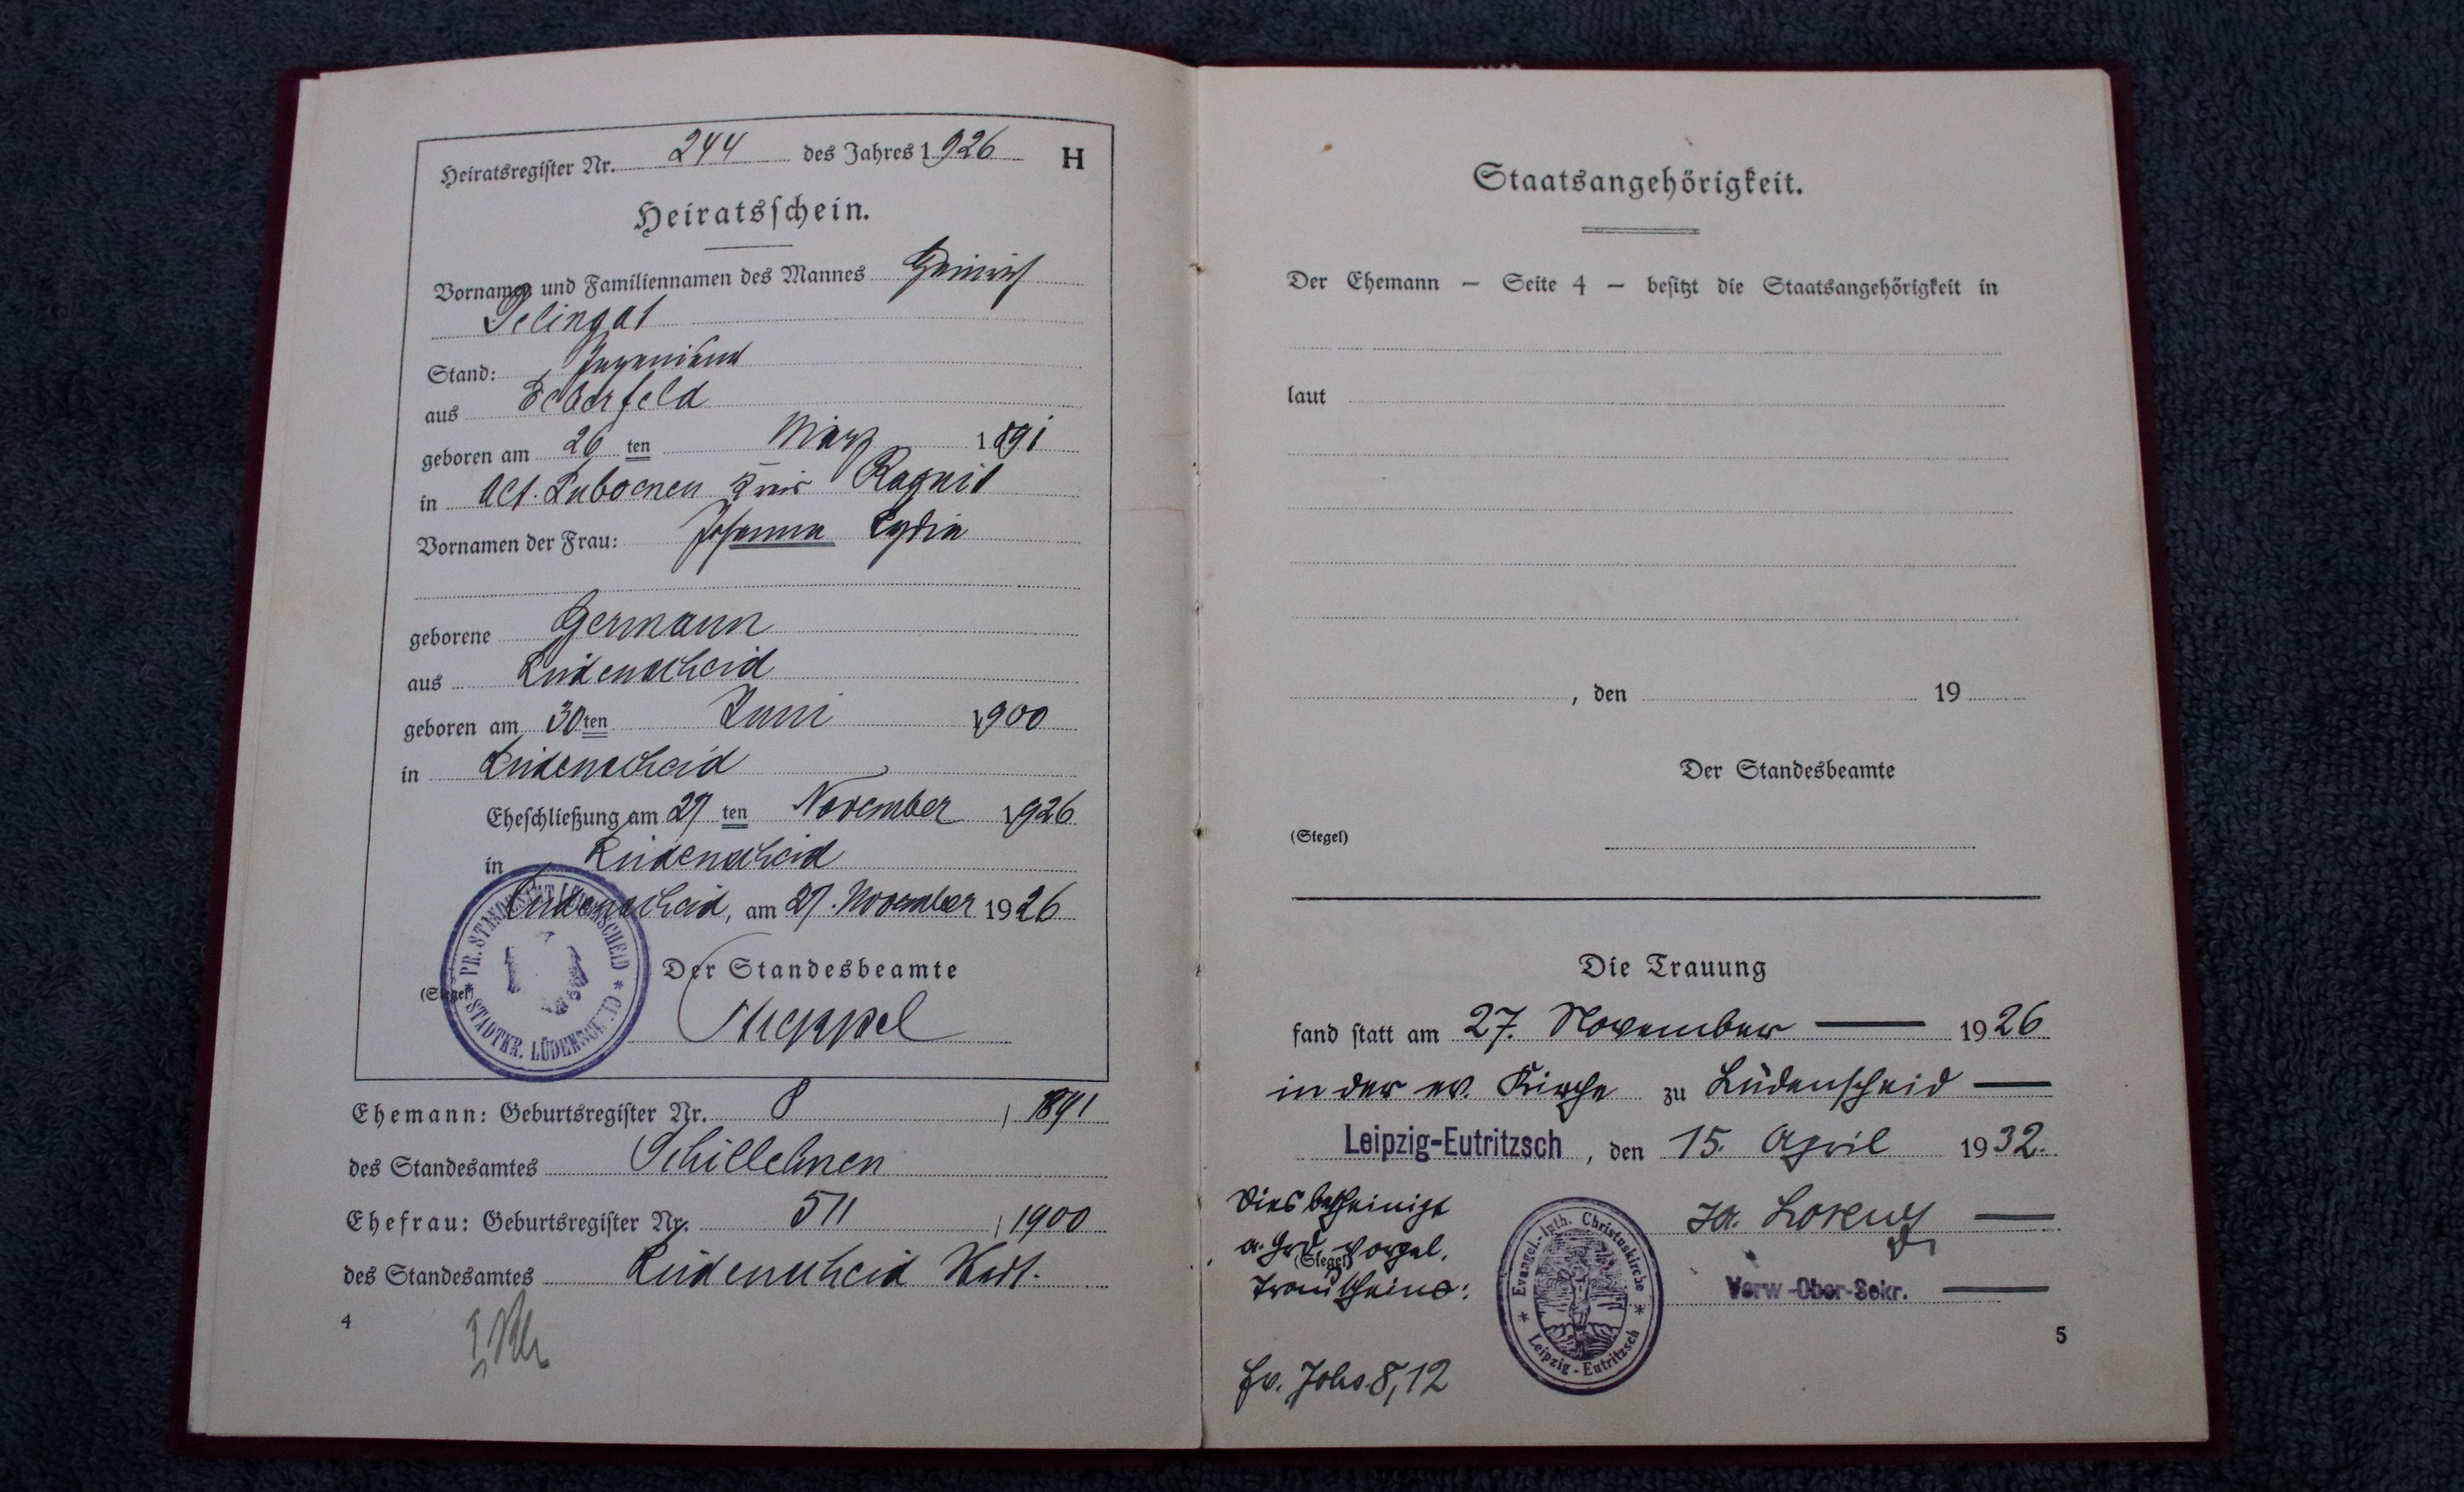 Heiratsregister Nr. 244 des Jahres 1926 H
Heiratsschein.
Vornamen und Familiennamen des Mannes Heinrich
Selingat
Stand: Ingenieur
aus Elberfeld
geboren am 26 ten März 1891
in Alt. Lubönen Kreis Ragnit
Vornamen der Frau: Johanna Lydia
geborene Germann
aus Lüdenscheid
geboren am 30 ten Juni 1900
in Lüdenscheid
Eheschließung am 27 ten November 1926
in Lüdenscheid
Lüdenscheid, am 27. November 1926
PR. STANDESAMT LÜDENSCHEID * STADTKR. LÜDENSCHEID *
(Siegel)
Der Standesbeamte
Ehemann: Geburtsregister Nr. 8 / 1891
des Standesamtes Schillehnen
Ehefrau: Geburtsregister Nr. 511 / 1900
des Standesamtes Lüdenscheid
4
Staatsangehörigkeit.
Der Ehemann — Seite 4 — besitzt die Staatsangehörigkeit in
laut
, den 19
Der Standesbeamte
(Siegel)
Die Trauung
fand statt am 27. November 1926
in der ev. Kirche zu Lüdenscheid
Leipzig-Eutritzsch, den 15. April 1932.
Dies bescheinigt
a. Grd. vorgel.
(Siegel)
Trauscheins:
Evangel.-luth. Christuskirche * Leipzig-Eutritzsch *
Lorenz
Verw-Ober-Sekr.
Ev. Johs. 8,12
5